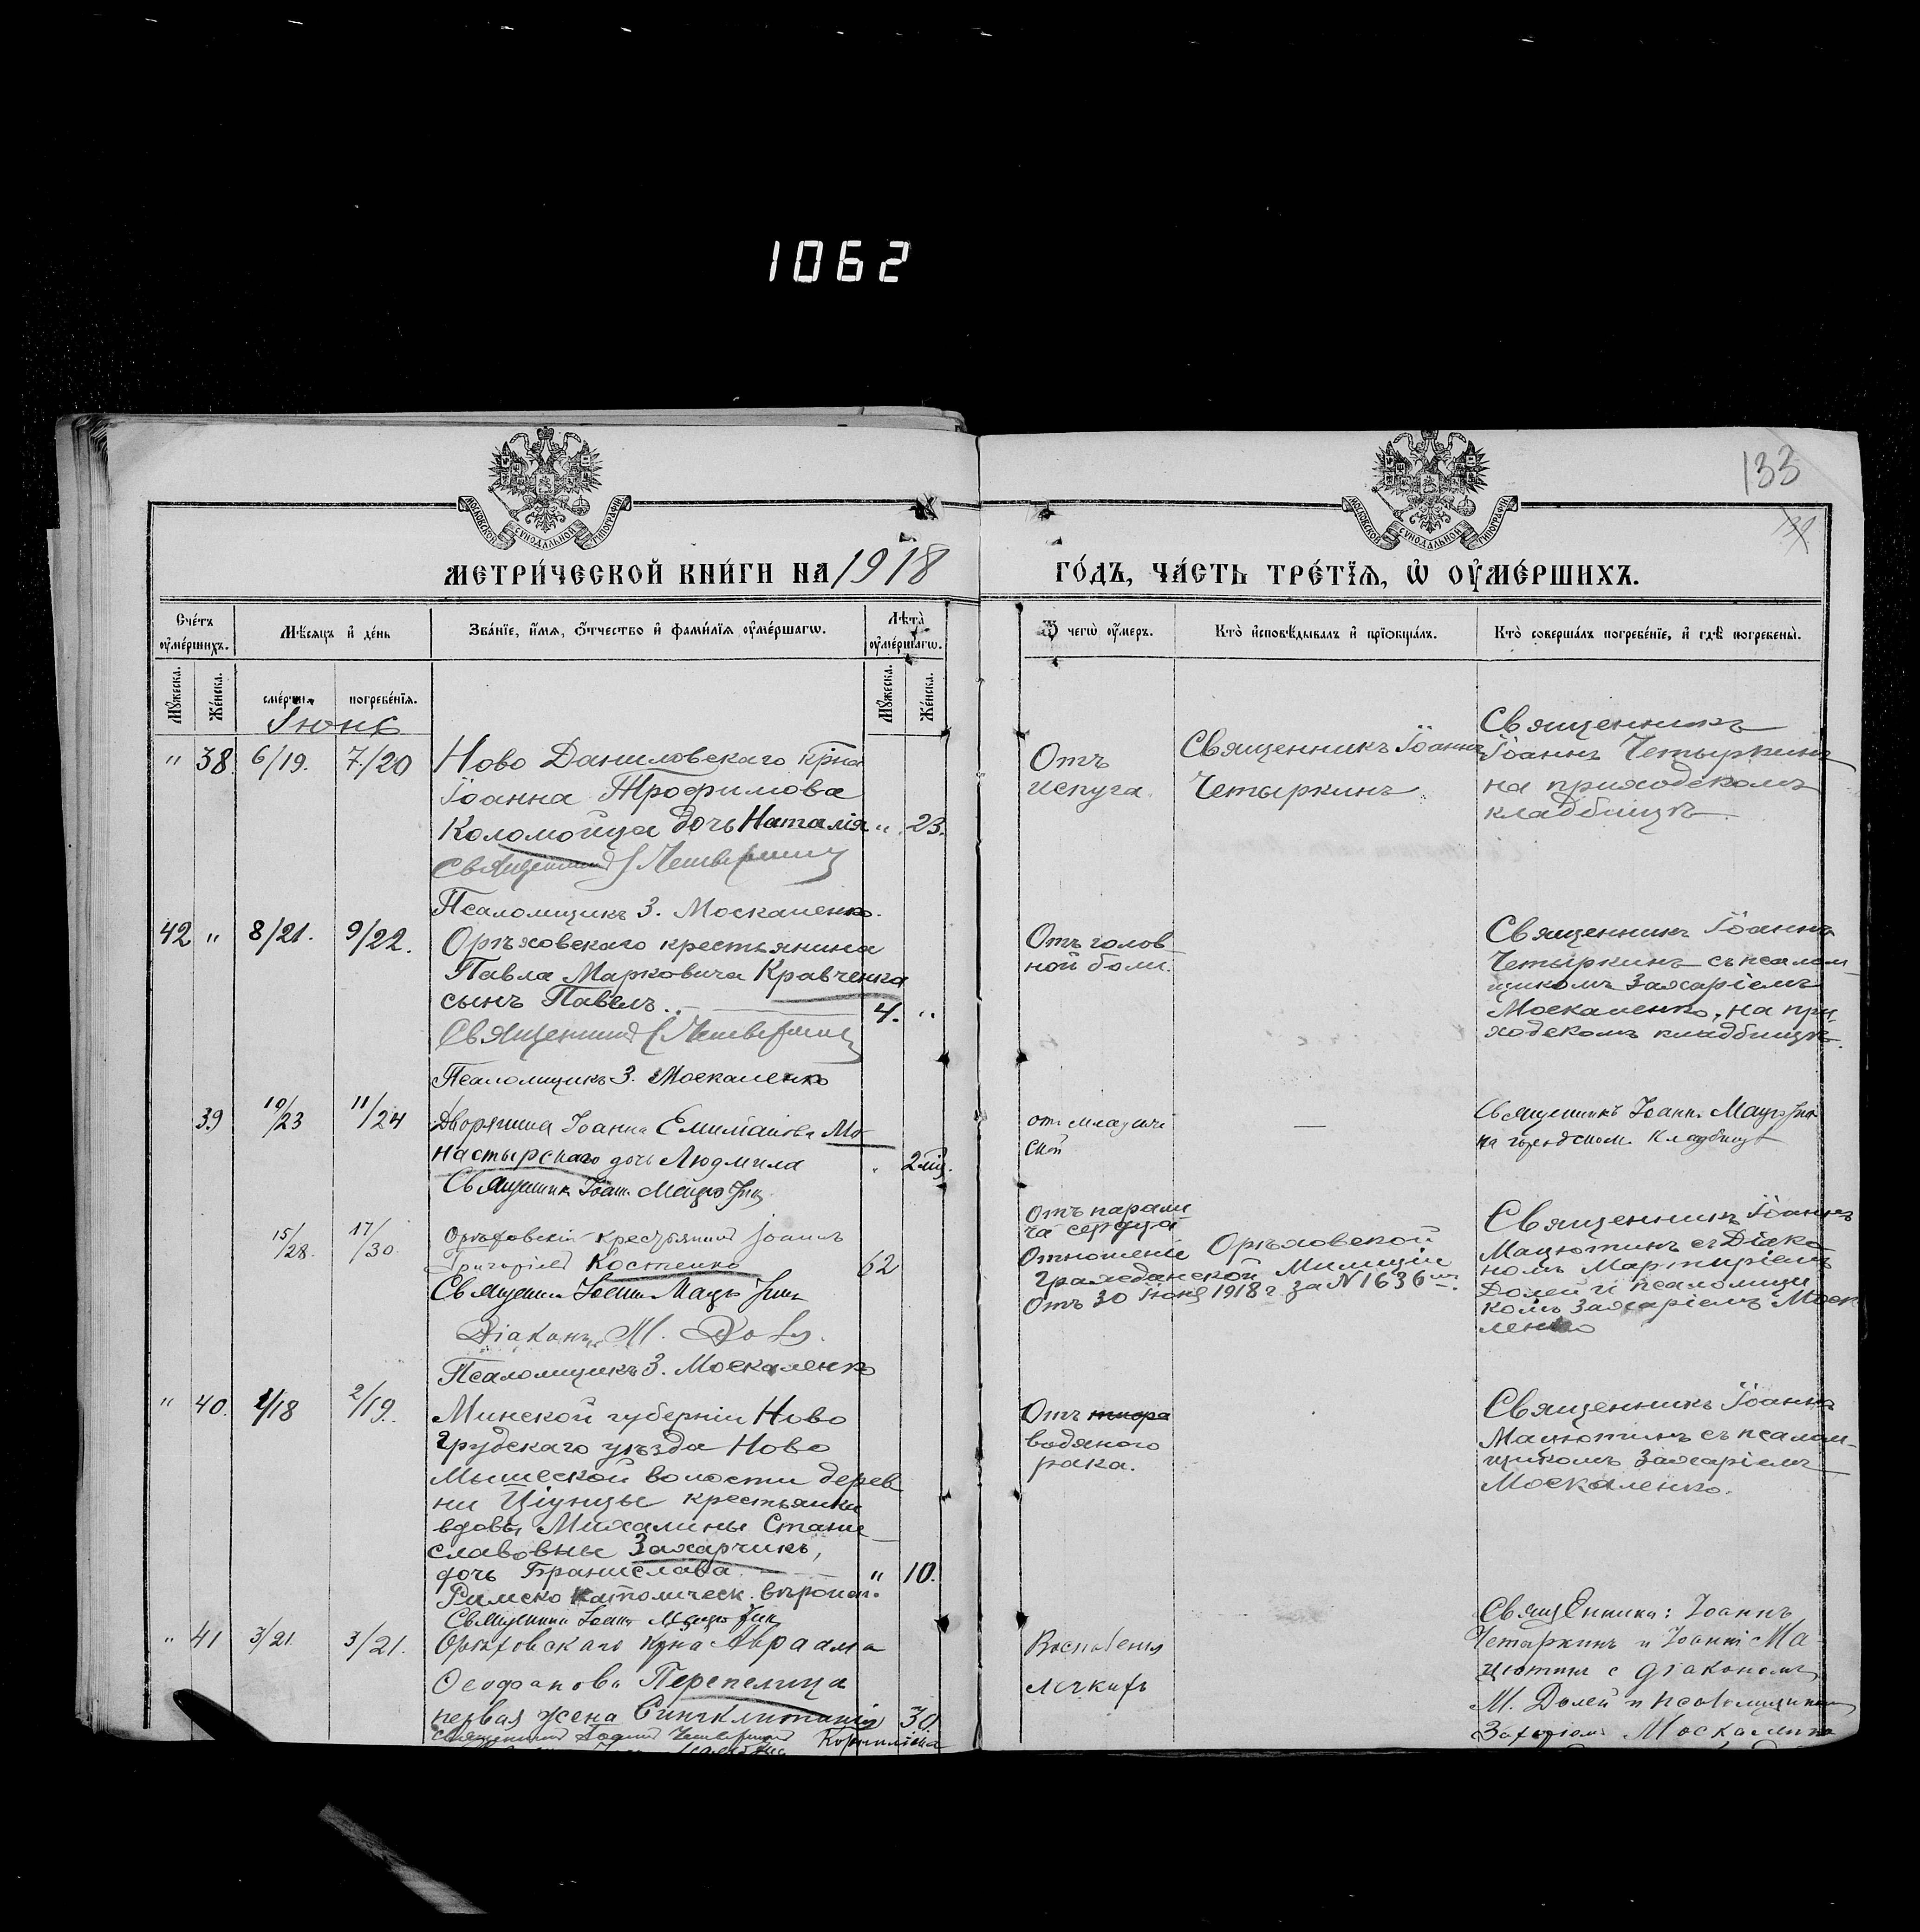 1062
133
МОСКОВСКОЙ СѴНОДАЛЬНОЙ ТИПОГРАФІИ
МОСКОВСКОЙ СѴНОДАЛЬНОЙ ТИПОГРАФІИ
МЕТРИ́ЧЕСКОЙ КНИ́ГИ НА 1918
ГО́ДЪ, ЧА́СТЬ ТРЕ́ТЇѦ, Ѽ ОУ҆МЕ́РШИХЪ.
Сче́тъ оу҆ме́ршихъ.
Мѣ́сяцъ и҆ де́нь
Зва́нїе, и҆́мѧ, ѻ҆́тчество и҆ фами́лїѧ оу҆ме́ршагѡ.
Лѣ́та оу҆ме́ршагѡ.
чегѡ̀ оу҆́меръ.
Кто̀ и҆сповѣ́дывалъ и҆ прїѡбща́лъ.
Кто̀ соверша́лъ погребе́нїе, и҆ гдѣ̀ погребены̀.
Му́жеска.
Же́нска.
сме́рти.
погребе́нїѧ.
Му́жеска.
Же́нска.
Іюнь
" 38 6/19. 7/20 Ново Даниловскаго кр-на
Іоанна Трофимова
Коломойца дочь Наталія " 23.
Священникъ І Четыркинъ
Псаломщикъ З. Москаленко.
Отъ
испуга.
Священникъ Іоаннъ
Четыркинъ
Священникъ
Іоаннъ Четыркинъ
на приходскомъ
кладбищѣ.
42 " 8/21. 9/22. Орѣховскаго крестьянина
Павла Марковича Кравченка
сынъ Павелъ. 4. "
Священникъ І Четыркинъ
Псаломщикъ З. Москаленко
Отъ голов
ной боли.
Священникъ Іоаннъ
Четыркинъ съ псалом
щикомъ Захаріемъ
Москаленко, на при
ходскомъ кладбищѣ.
39 10/23 11/24 Дворянина Іоанна Мо
настырскаго дочь Людмила " 2 мц.
Священник Іоан. Мацютин
от младенч
ской
—
Священникъ Іоанн. Мацютин
на городском. кладбищѣ
15/28. 17/30. Орѣховскій крестьянинъ Іоаннъ
Григоріевъ Костенко 62
Священник Іоанн Мацютин
Діаконъ М. Доля.
Псаломщикъ З. Москаленко
Отъ парали
ча сердца
Отношеніе Орѣховской
Гражданской Милиціи
Отъ 30 Іюня 1918 г. за N 1636
Священникъ Іоаннъ
Мацютинъ съ Діако
номъ Мартиріемъ
Долей и псаломщи
комъ Захаріемъ Моск
ленко
" 40. 1/18 2/19. Минской губерніи Ново
грудскаго уѣзда Ново
Мышской волости дерев
ни крестьянки
вдовы Михалины Стани
славовны Захарчикъ,
дочь Браниславa " 10.
Римско католическ. вѣроисп.
Священник Іоанн Мацютин
Отъ
водяного
рака.
Священникъ Іоаннъ
Мацютинъ съ псалом-
щикомъ Захаріемъ
Москаленко.
" 41 3/21. 3/21. Орѣховскаго кр-на Авраама
Ѳеофанова Перепелица
первая жена Синклитикія 30.
Священникъ Іоаннъ Четыркинъ Корниліева
Воспаленія
легкихъ
Священники: Іоаннъ
Четыркинъ и Іоаннъ Ма-
цютинъ с діакономъ
М. Долей и псаломщикомъ
Захаріемъ Москаленко